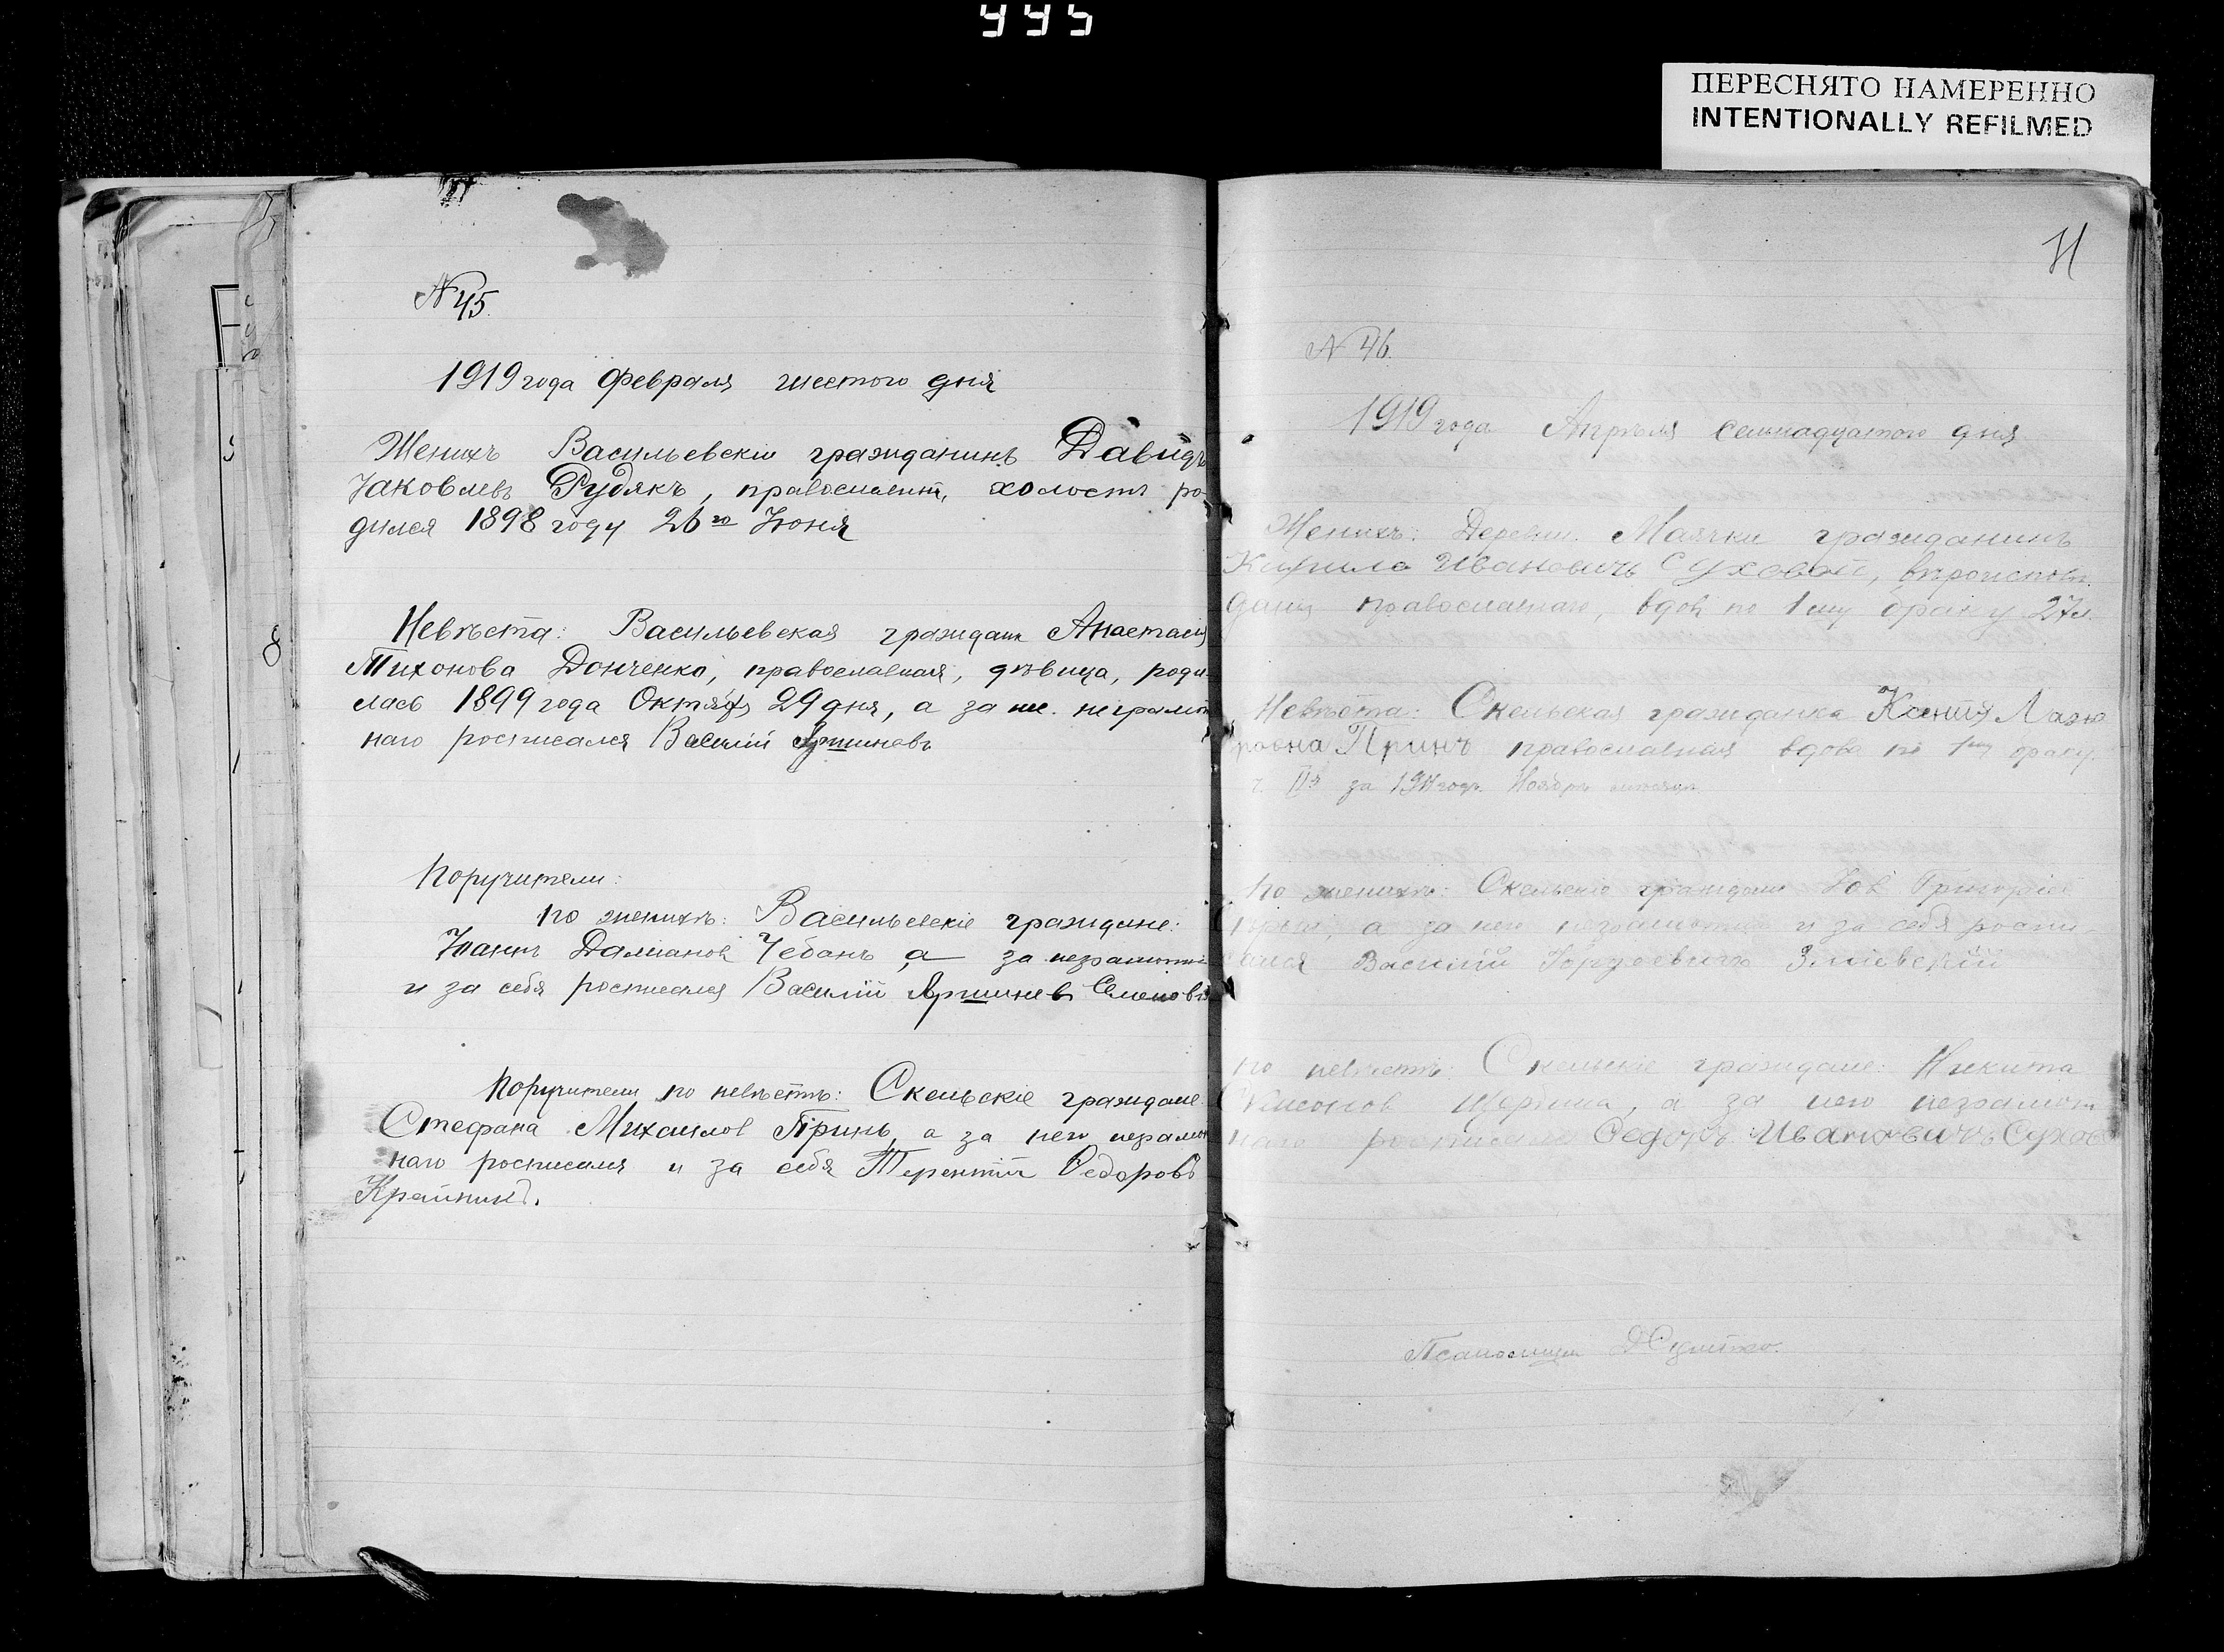 445
ПЕРЕСНЯТО НАМЕРЕННО
INTENTIONALLY REFILMED
N 45.
1919 года Февраля шестого дня
Женихъ Васильевскiй гражданинъ Давидъ
Iаковлевъ Рудякъ, православный, холостъ ро-
дился 1898 году 26го Iюня
Невѣста: Васильевская граждан Анастасiя
Тихонова Донченко, православная, дѣвица, роди-
лась 1899 года Октября 29 дня, а за не неграмот
наго росписался Василiй Аршиновъ
Поручители:
по женихѣ: Васильевскiе граждане:
Iоаннъ Дамианов Чебанъ, а за неграмотн
и за себя росписался Василiй Аршинев Семеновъ
Поручители по невѣстѣ: Скельскiе граждане
Стефана Михаилов Принь, а за него неграмот
наго росписался и за себя Терентiй Ѳедоровъ
Крайникъ.
11
N 46.
1919 года Апрѣля семнадцатого дня
Женихъ: Деревни Маячки гражданинъ
Кирила Ивановичъ Суховой, вѣроисповѣ
данiя православнаго, вдов по 1му браку 27 л.
Невѣста: Скельская гражданка Ксенiя Лаза
ровна Принъ православная вдова по 1му браку.
за 19 Ноябрь
По женихѣ: Скельскiе граждане Iов Григорiев
а за него неграмотн и за себя роспи-
сался Василiй Змiевскiй
по невѣстѣ: Скельскiе граждане: Никита
Самсонов Щербина, а за него неграмот
наго росписался Ѳедоръ Ивановичъ Сухов
Псаломщик